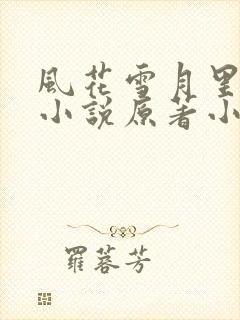 風花雪月里
小說原著小
羅蓉芳